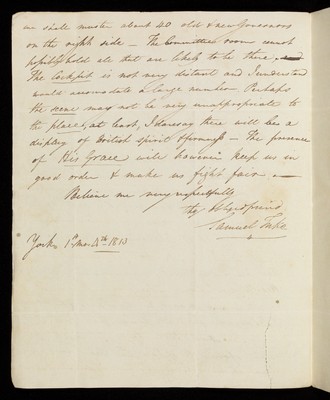 we shall muster about 40 old & new Governors
on the right side – The Committee room cannot
possibly hold all that are likely to be there,
The Cockpit is not very distant and I understand
would accomodate a large number – Perhaps
the scene may not be very unappropriate to
the place, at least, I daresay there will be a
display of British spirit & firmness – The presence
of His Grace will however keep us in
good order & make us fight fair. –
Believe me very respectfully
thy obliged friend,
Samuel Tuke
York, 1st mo. 4th 1813